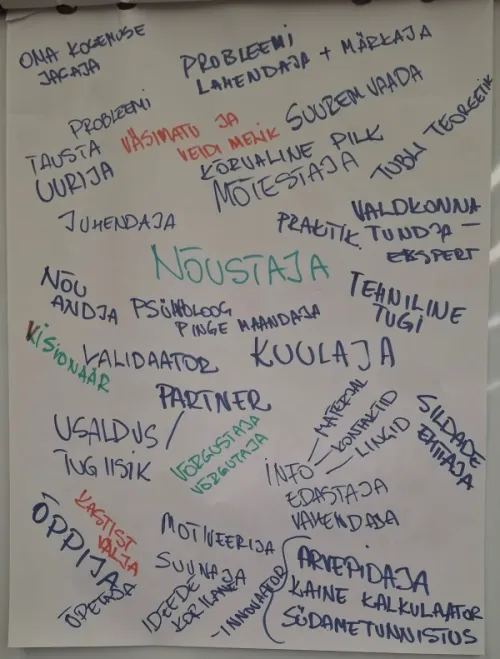 OMA KOGEMUSE
JAGAJA
PROBLEEMI
LAHENDAJA + MÄRKAJA
PROBLEEMI
TAUSTA
UURIJA
VÄSIMATU JA
VEIDI MENIK
SUUREM VAADA
KÕRVALINE PILK
MÕTESTAJA
TUBLI TEOREETIK
JUHENDAJA
PRAKTIK
VALDKONNA
TUNDJA –
EKSPERT
NÕUSTAJA
NÕU
ANDJA
PSÜHOLOOG
PINGE MAANDAJA
TEHNILINE
TUGI
VISIONÄÄR
VALIDAATOR
KUULAJA
PARTNER
USALDUS /
TUGIISIK
VÕRGUSTAJA
VÕRGUTAJA
INFO
MATERJAL
KONTAKTID
LINGID
EDASTAJA
VAHENDAJA
SILDADE
EHITAJA
ÕPPIJA
KASTIST
VÄLJA
ÕPETAJA
MOTIVEERIJA
SUUNAJA
IDEEDE
KORJAJA
-INNOVAATOR
ARVEPIDAJA
KAINE KALKULAATOR
SÜDAMETUNNISTUS